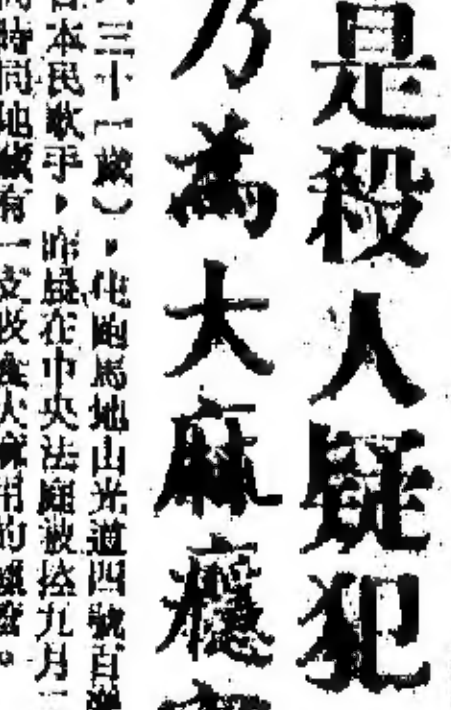 是殺人疑犯
乃為大麻癮
三十一歲），住跑馬地山光道四號百
本民歌手，昨晨在中央法庭被控九月
時同地藏有一支吸食大麻用的煙